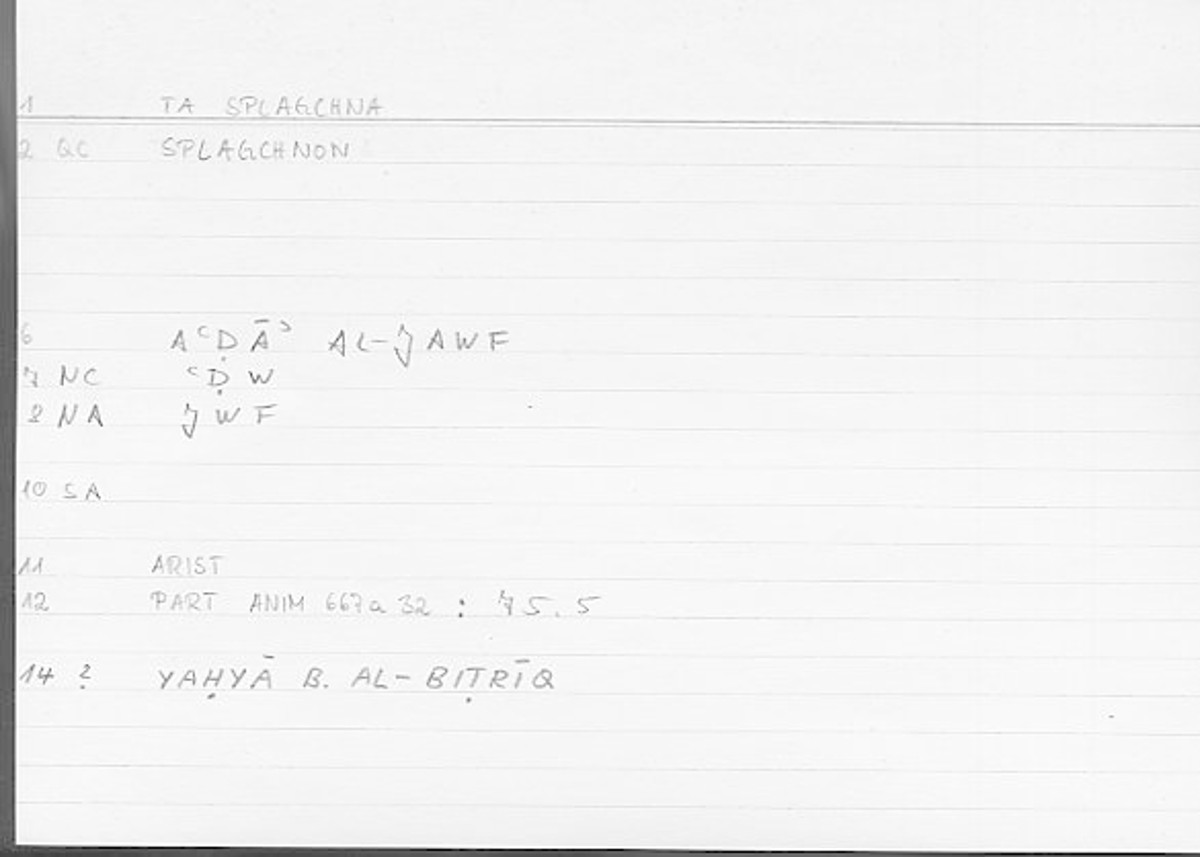 1 TA SPLAGCHNA
2 QC SPLAGCHNON
6 AʿḌĀʾ AL-JAWF
7 NC ʿḌW
8 NA JWF
10 SA
11 ARIST
12 PART ANIM 667a 32 : 75.5
14 ? YAḤYĀ B. AL-BIṬRĪQ